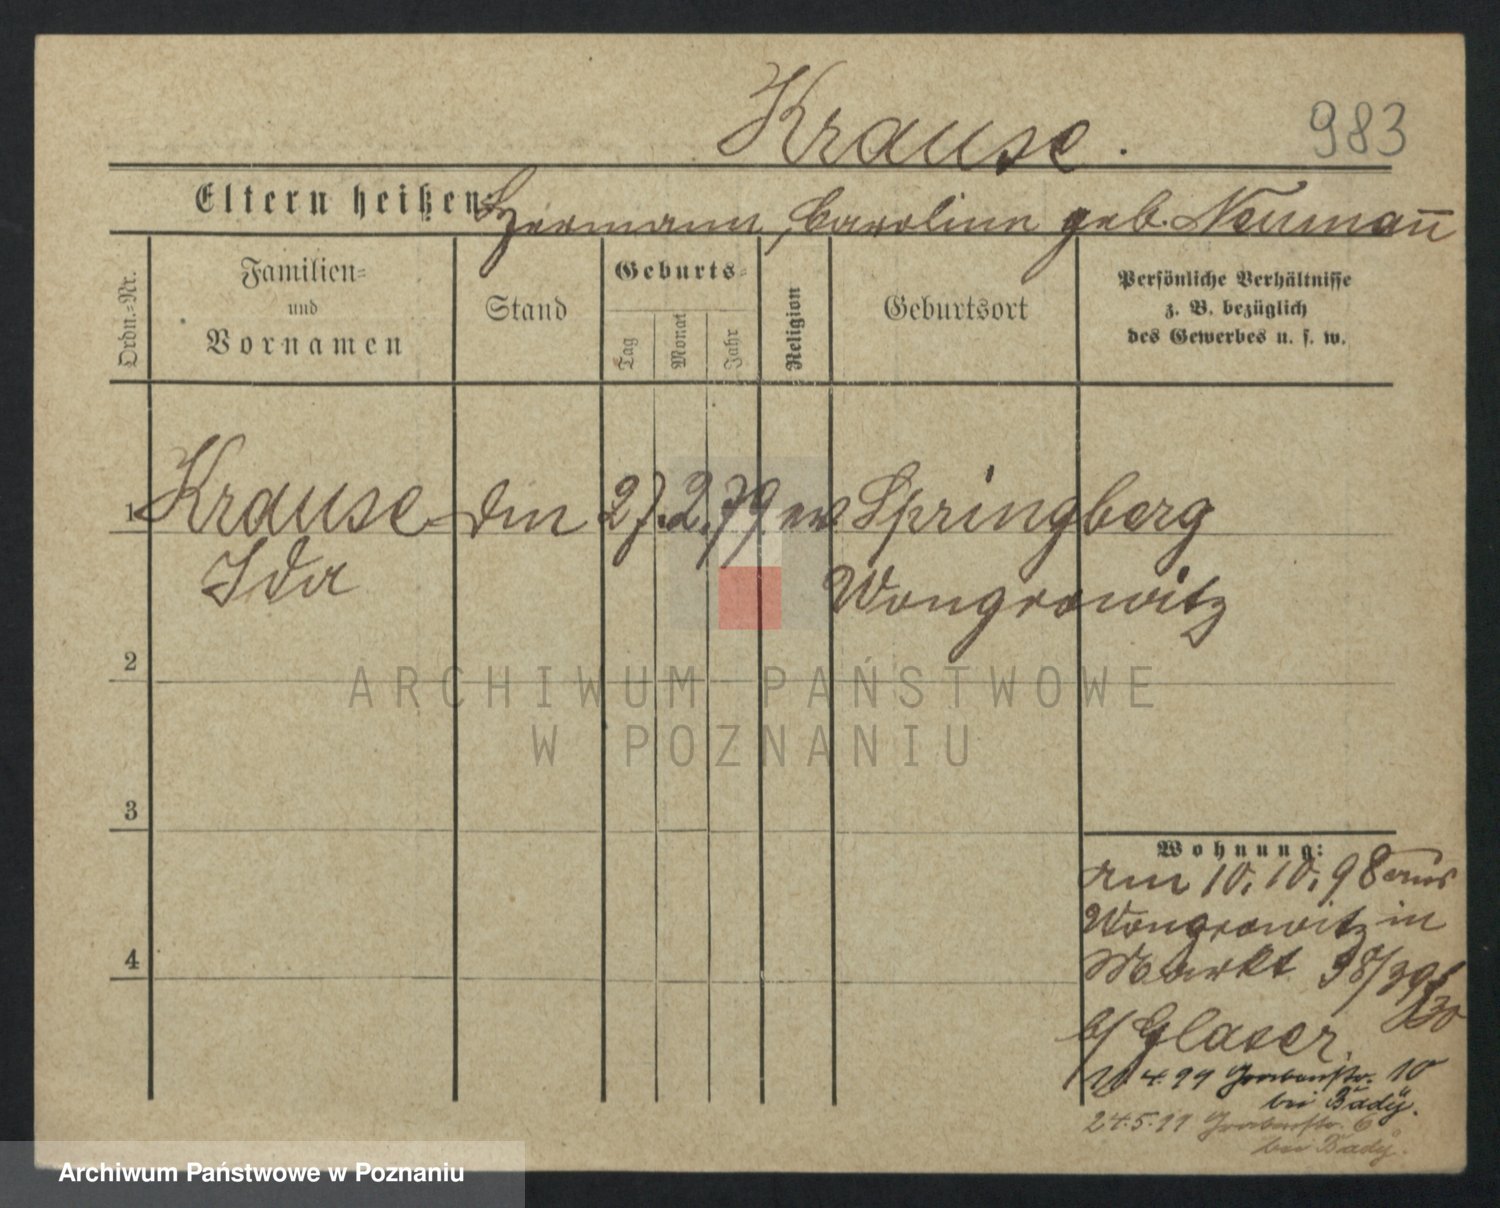 Krause. 983
Eltern heißen: Hermann, Caroline geb. Neumañ
Ordn.=Nr.
Familien=
und
Vornamen
Stand
Geburts=
Tag
Monat
Jahr
Religion
Geburtsort
Persönliche Verhältnisse
z. B. bezüglich
des Gewerbes u. s. w.
1 Krause 27. 2. 79. ev Springberg
Ida Wongrowitz
2
ARCHIWUM PAŃSTWOWE
W POZNANIU
3
Wohnung:
am 10. 10. 98 aus
Wongrowitz in
4
Markt
b/ Glaser.
4. 99 Grabenstr. 10
bei Bädÿ.
24.5.99 Grabenstr. 6
bei Bädÿ.
Archiwum Państwowe w Poznaniu